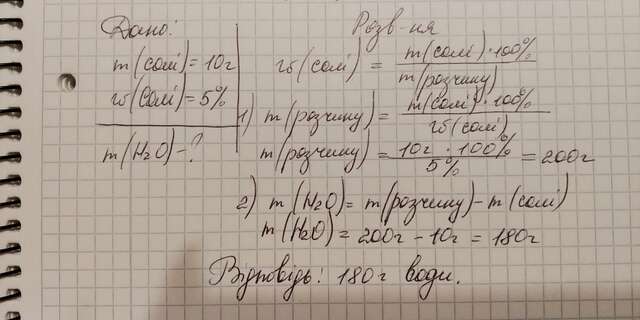 Дано:
m(солі)=10г
w(солі)=5%
m(H₂O)-?
Розв-ня
w(солі) = m(солі)·100% / m(розчину)
1) m(розчину) = m(солі)·100% / w(солі)
m(розчину) = 10г · 100% / 5% = 200г
2) m(H₂O)= m(розчину)-m(солі)
m(H₂O) = 200г - 10г = 180г
Відповідь: 180г води.